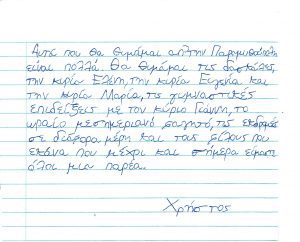 Αυτό που θα θυμάμαι από την Παραμυθούπολη
είναι πολλά. Θα θυμάμαι τις δασκάλες,
την κυρία Ελένη, την κυρία Ευγενία και
την κυρία Μαρία, τις γυμναστικές
επιδείξεις με τον κύριο Γιάννη, το
ωραίο μεσημεριανό φαγητό, τις εκδρομές
σε διάφορα μέρη και τους φίλους που
έκανα που μέχρι και σήμερα είμαστε
όλοι μια παρέα.
Χρήστος